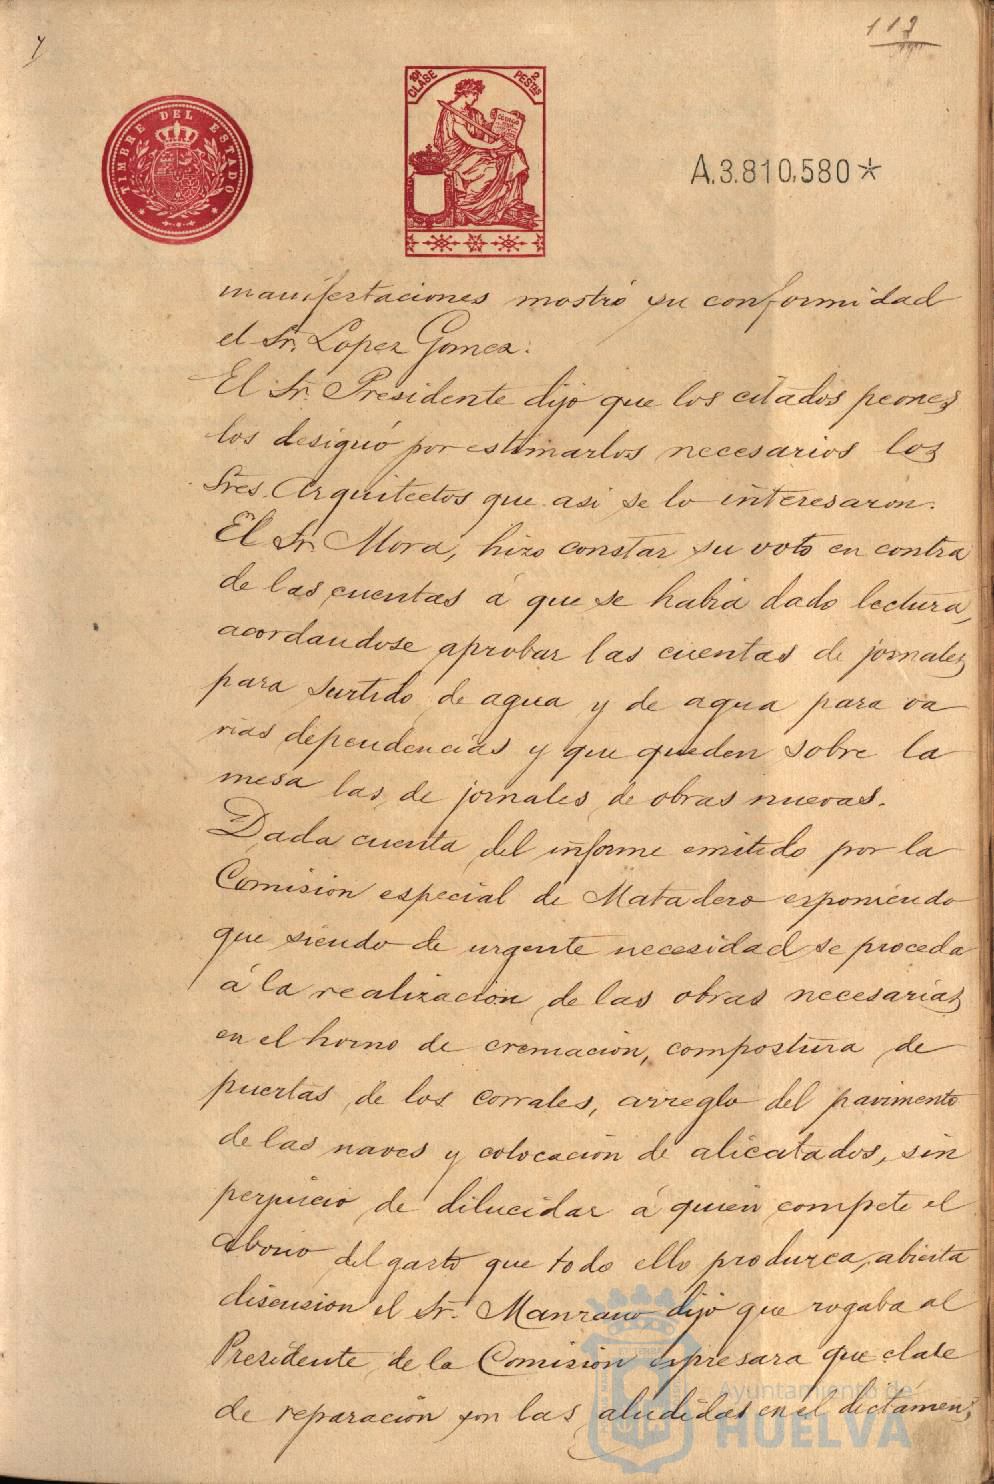 113
TIMBRE DEL ESTADO
10ª CLASE
2 PESTAS
A.3.810.580*
manifestaciones mostró su conformidad
el Sr. Lopez Gomez.
El Sr. Presidente dijo que los citados peones
los designó por estimarlos necesarios los
Sres. Arquitectos que asi se lo interesaron.
El Sr. Mora, hizo constar su voto en contra
de las cuentas á que se habia dado lectura,
acordandose aprobar las cuentas de jornales
para surtido de agua y de agua para va
rias dependencias y que queden sobre la
mesa las de jornales de obras nuevas.
Dada cuenta del informe emitido por la
Comision especial de Matadero exponiendo
que siendo de urgente necesidad se proceda
á la realización de las obras necesarias
en el horno de cremacion, compostura de
puertas de los corrales, arreglo del pavimento
de las naves y colocacion de alicatados, sin
perjuicio de dilucidar á quien compete el
abono del gasto que todo ello produzca, abierta
discusion el Sr. Manzano dijo que rogaba al
Presidente de la Comisión espresara que clase
de reparación son las aludidas en el dictámen,
Ayuntamiento de
HUELVA